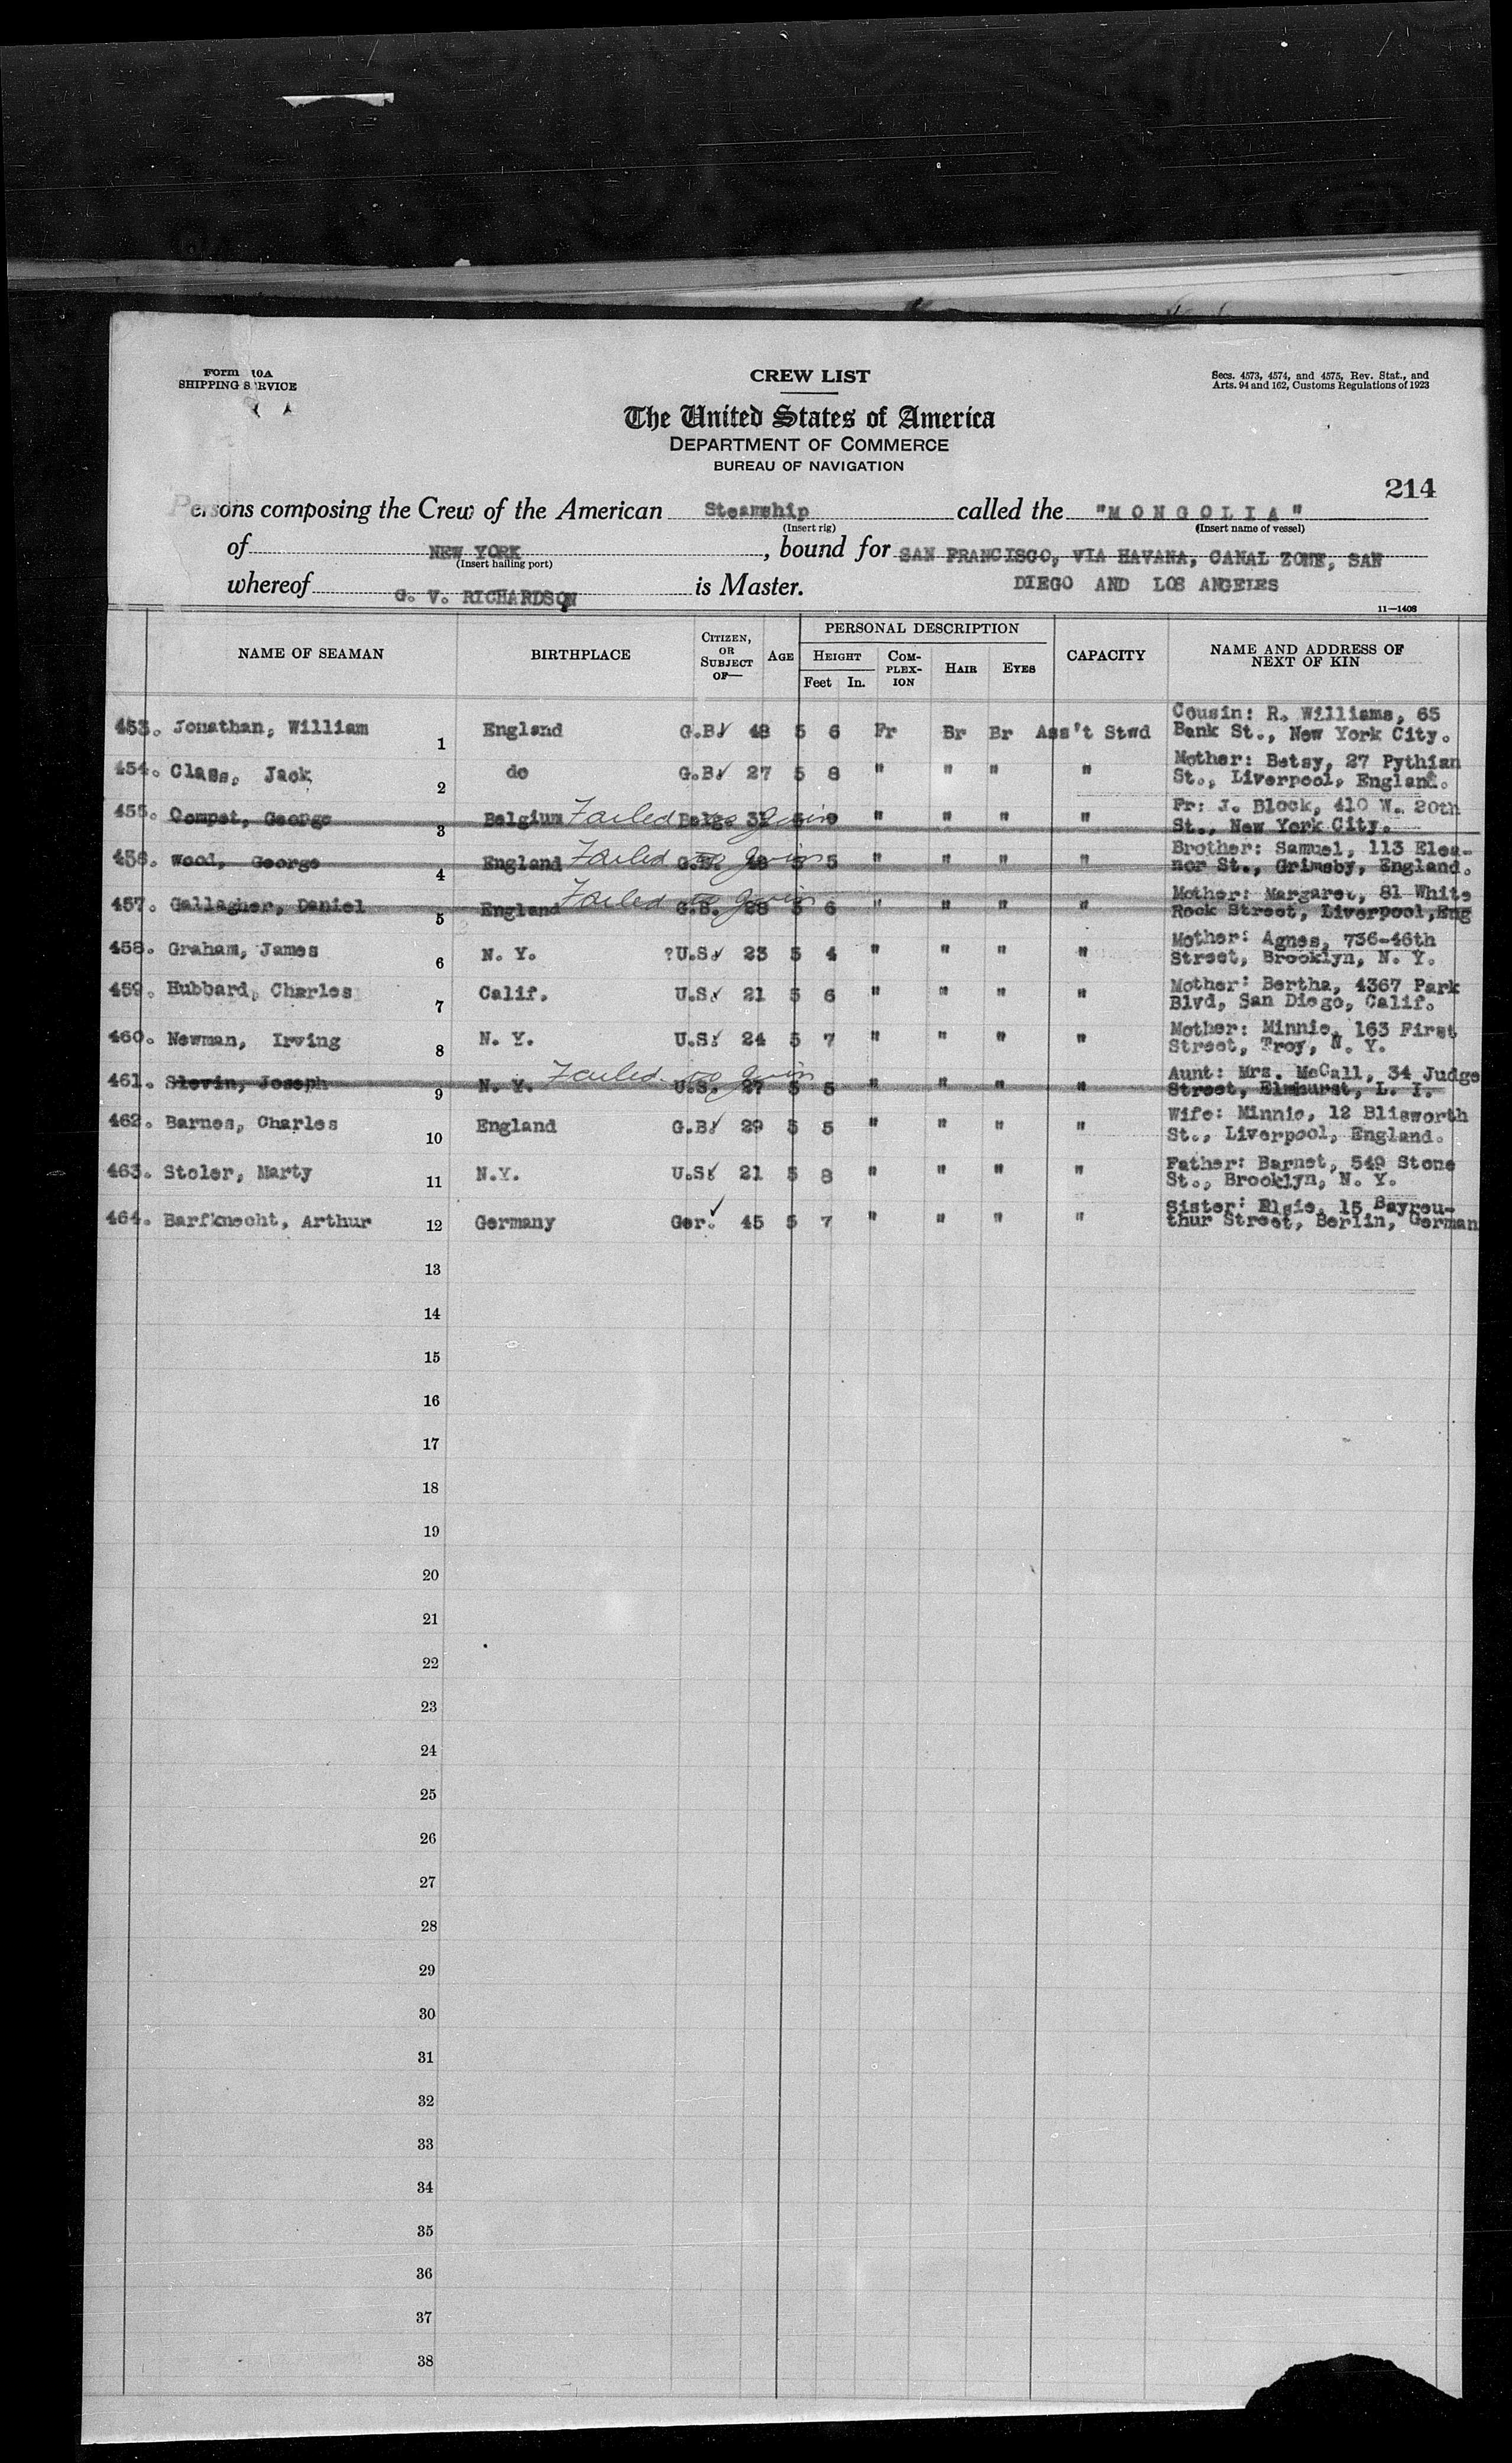 Form 10A
SHIPPING SERVICE
CREW LIST
Secs. 4573, 4574, and 4575, Rev. Stat., and
Arts. 94 and 162, Customs Regulations of 1923
The United States of America
DEPARTMENT OF COMMERCE
BUREAU OF NAVIGATION
214
Persons composing the Crew of the American Steamship called the "MONGOLIA"
(Insert rig) (Insert name of vessel)
of NEW YORK, bound for SAN FRANCISCO, VIA HAVANA, CANAL ZONE, SAN
(Insert hailing port)
whereof G. V. RICHARDSON is Master. DIEGO AND LOS ANGELES
11—1408
NAME OF SEAMAN BIRTHPLACE CITIZEN, OR SUBJECT OF— AGE PERSONAL DESCRIPTION HEIGHT Feet In. COMPLEXION HAIR EYES CAPACITY NAME AND ADDRESS OF NEXT OF KIN
Cousin: R. Williams, 65
453. Jonathan, William 1 England G.B. 48 5 6 Fr Br Br Ass't Stwd Bank St., New York City.
Mother: Betsy, 27 Pythian
454. Class, Jack 2 do G.B. 27 5 8 " " " " St., Liverpool, England.
Fr: J. Block, 410 W. 20th
455. Compet, George 3 Belgium Failed to Join Belg. 32 5 9 " " " " St., New York City.
Brother: Samuel, 113 Elea-
456. Wood, George 4 England Failed to Join G.B. 48 5 5 " " " " nor St., Grimsby, England.
Mother: Margaret, 81 White
457. Gallagher, Daniel 5 England Failed to Join G.B. 28 5 6 " " " " Rock Street, Liverpool,Eng
Mother: Agnes, 736-46th
458. Graham, James 6 N. Y. ?U.S. 23 5 4 " " " " Street, Brooklyn, N. Y.
Mother: Bertha, 4367 Park
459. Hubbard, Charles 7 Calif. U.S. 21 5 6 " " " " Blvd, San Diego, Calif.
Mother: Minnie, 163 First
460. Newman, Irving 8 N. Y. U.S. 24 5 7 " " " " Street, Troy, N. Y.
Aunt: Mrs. McCall, 34 Judge
461. Slevin, Joseph 9 N. Y. Failed to Join U.S. 27 5 5 " " " " Street, Elmhurst, L. I.
Wife: Minnie, 12 Blisworth
462. Barnes, Charles 10 England G.B. 29 5 5 " " " " St., Liverpool, England.
Father: Barnet, 549 Stone
463. Stoler, Marty 11 N.Y. U.S. 21 5 8 " " " " St., Brooklyn, N. Y.
Sister: Elsie, 15 Bayreu-
464. Barfknecht, Arthur 12 Germany Ger. 45 5 7 " " " " thur Street, Berlin, German
13
14
15
16
17
18
19
20
21
22
23
24
25
26
27
28
29
30
31
32
33
34
35
36
37
38